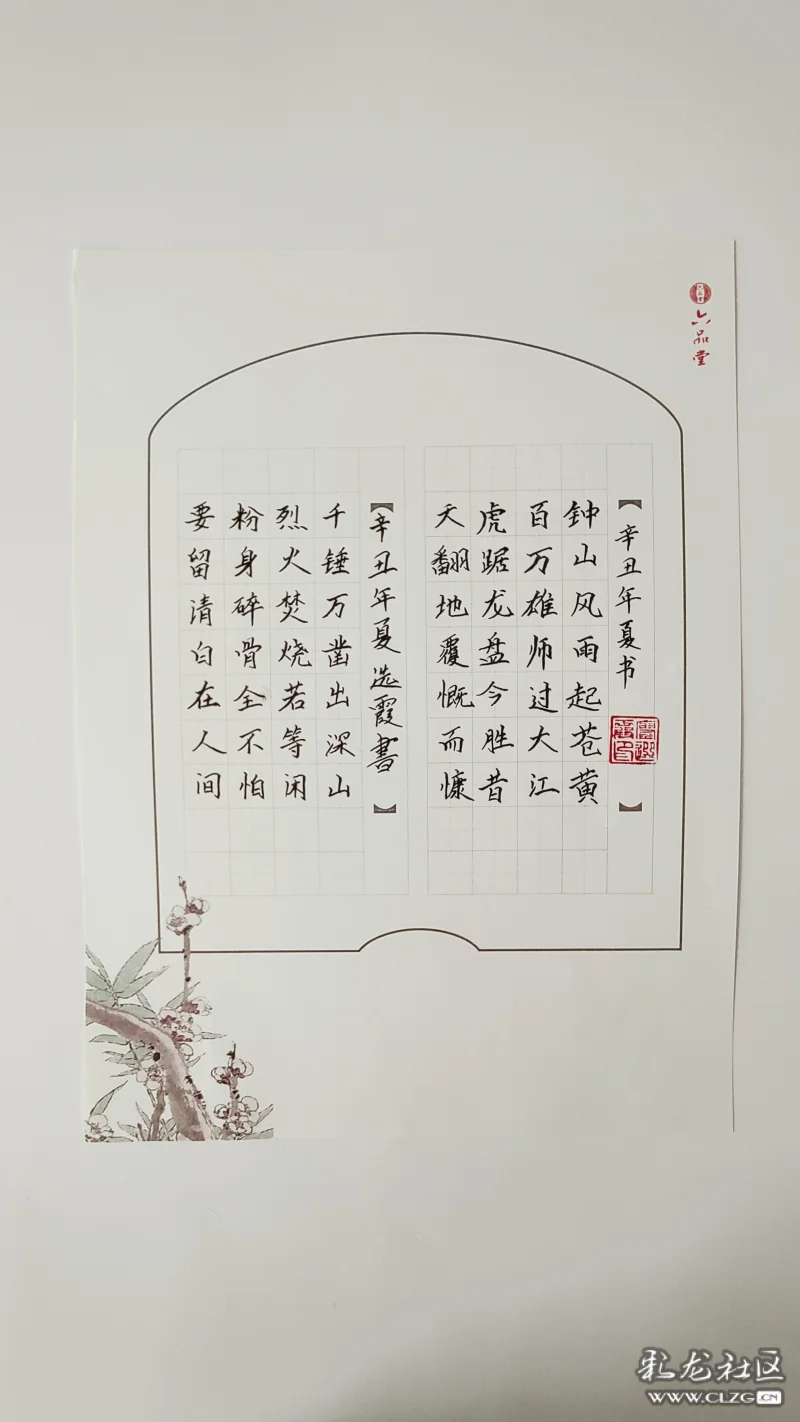 六品堂
【辛丑年夏书】
钟山风雨起苍黄
百万雄师过大江
虎踞龙盘今胜昔
天翻地覆慨而慷
【辛丑年夏选霞書】
千锤万凿出深山
烈火焚烧若等闲
粉身碎骨全不怕
要留清白在人间
彩龙社区
WWW.CLZG.CN